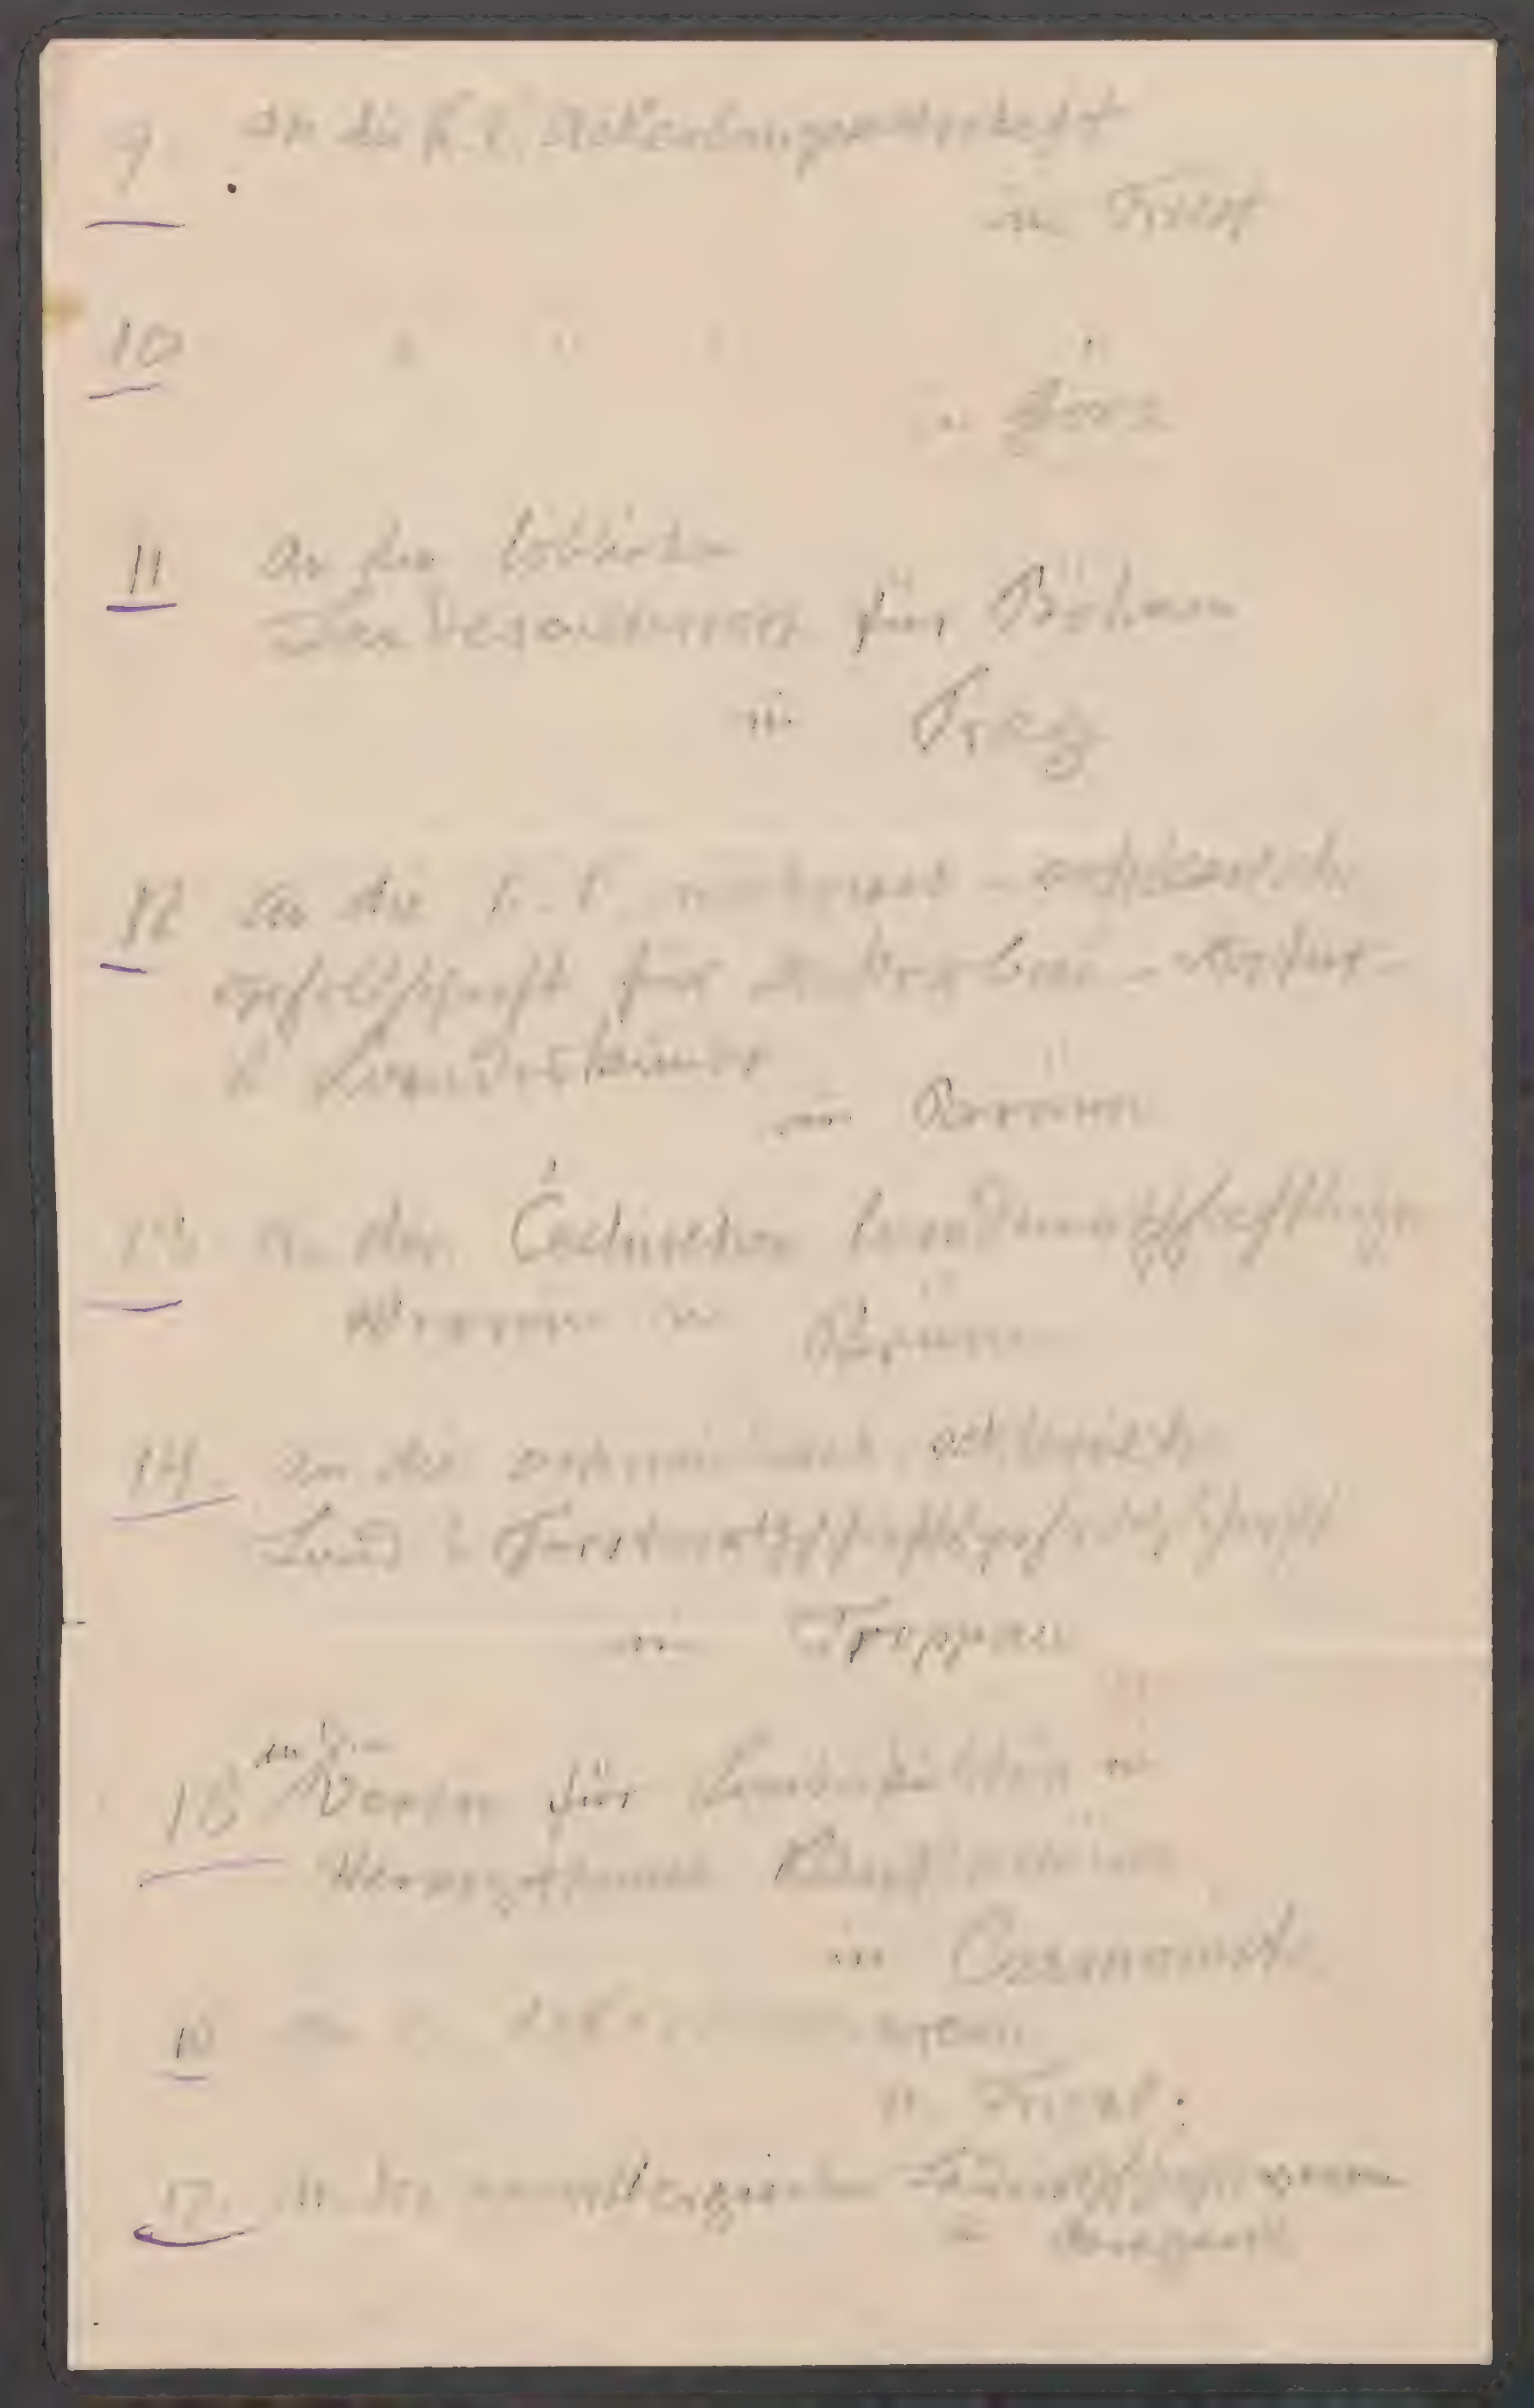 9 An die k. k. Ackerbaugesellschaft
in Triest
10 " " " "
in Görz
11 An den löblichen
Landesausschuss für Böhmen
in Prag
12 An die k. k. mährisch-schlesische
Gesellschaft für Ackerbau-Natur-
& Landeskunde
in Brünn
13 An den Čechischen landwirthschaftlichen
Verein in Brünn
14. An die schlesische
Land & Forstwirthschaftsgesellschaft
in Troppau
an den
15 Verein für Landeskultur in
Herzogthume
in Czernowitz
16
in Triest.
17. An den vorarlbergischen Landwirthschaftsverein
in Bregenz